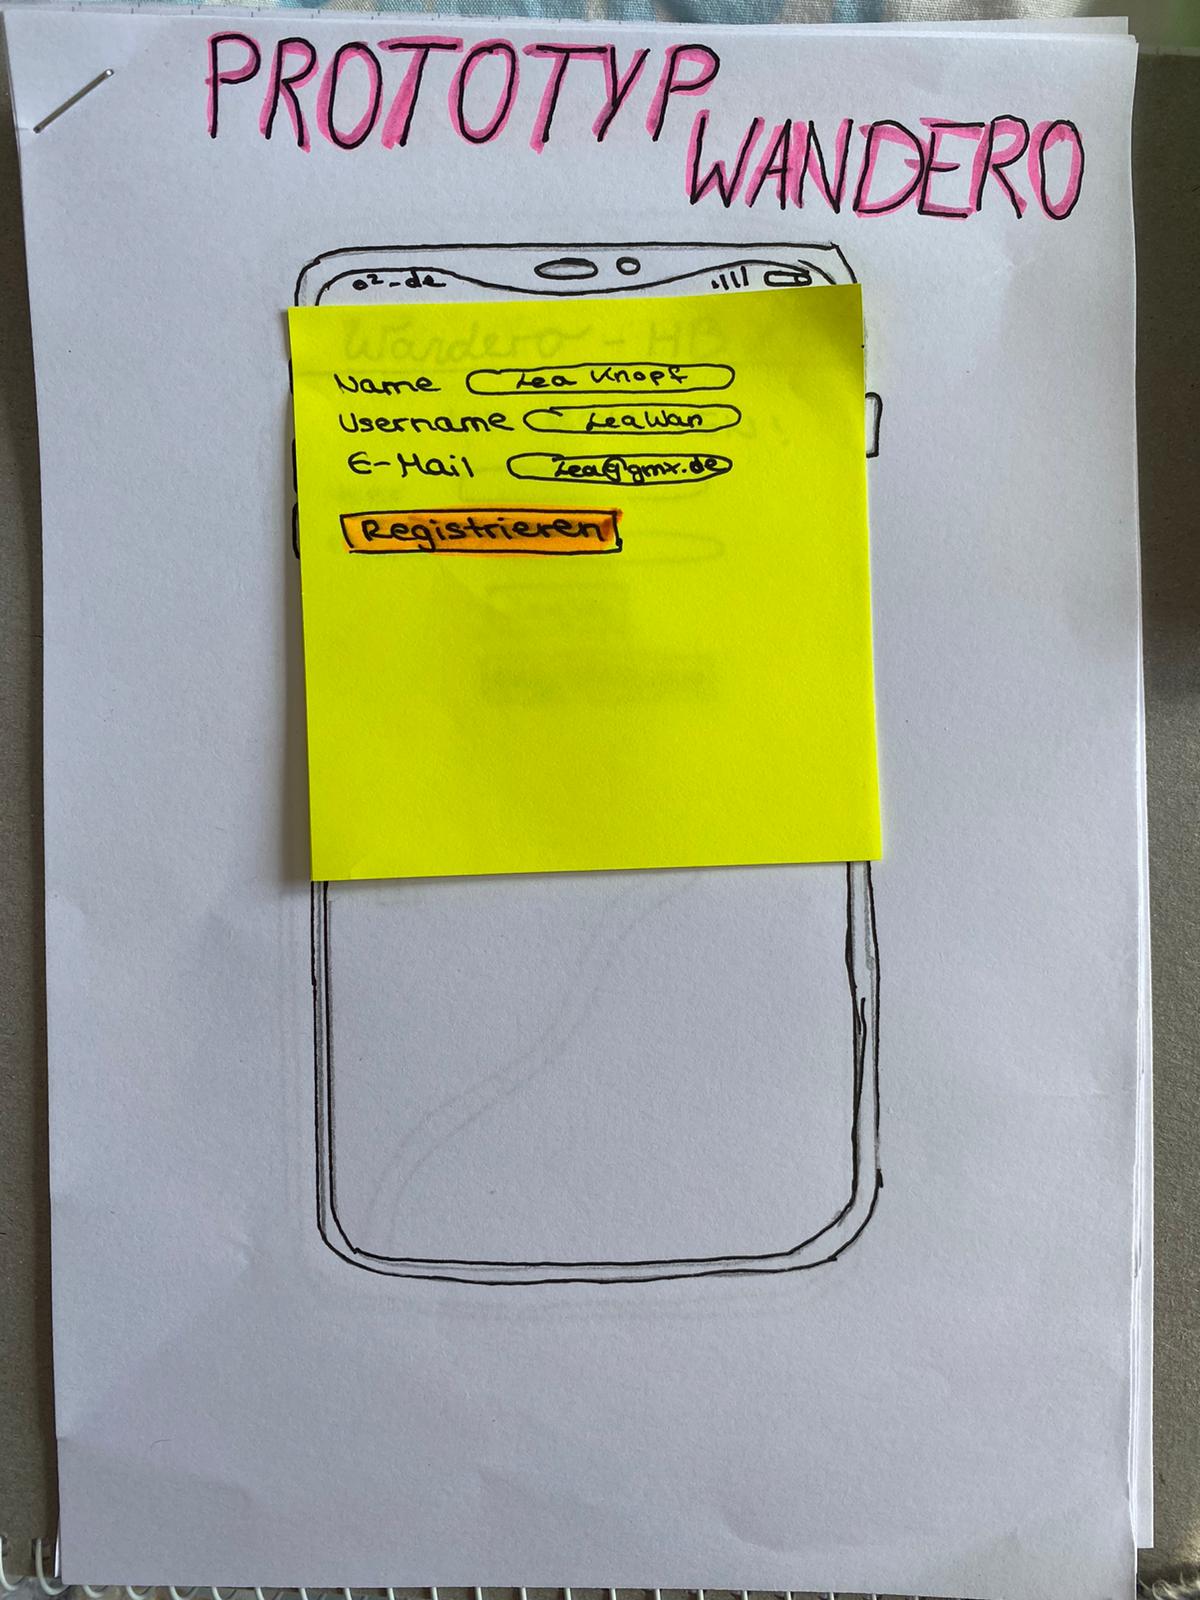 PROTOTYP
WANDERO
o²-de
Wandero - HB
Name Lea Knopf
Username LeaWan
E-Mail Lea@gmx.de
Registrieren